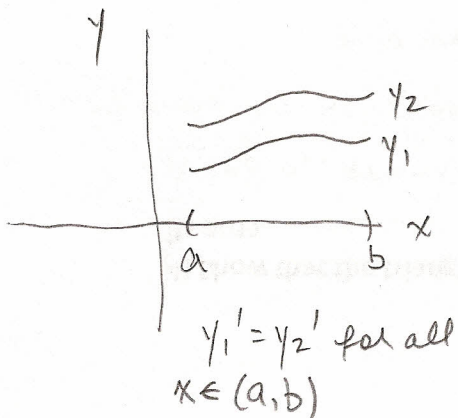 y
y2
y1
( ) x
a b
y1' = y2' for all
x ∈ (a, b)